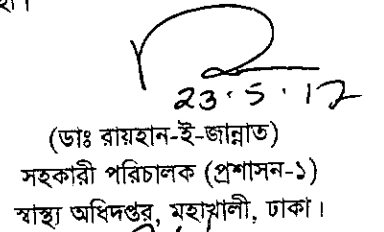 23.5.12
(ডাঃ রায়হান-ই-জান্নাত)
সহকারী পরিচালক (প্রশাসন-১)
স্বাস্থ্য অধিদপ্তর, মহাখালী, ঢাকা।